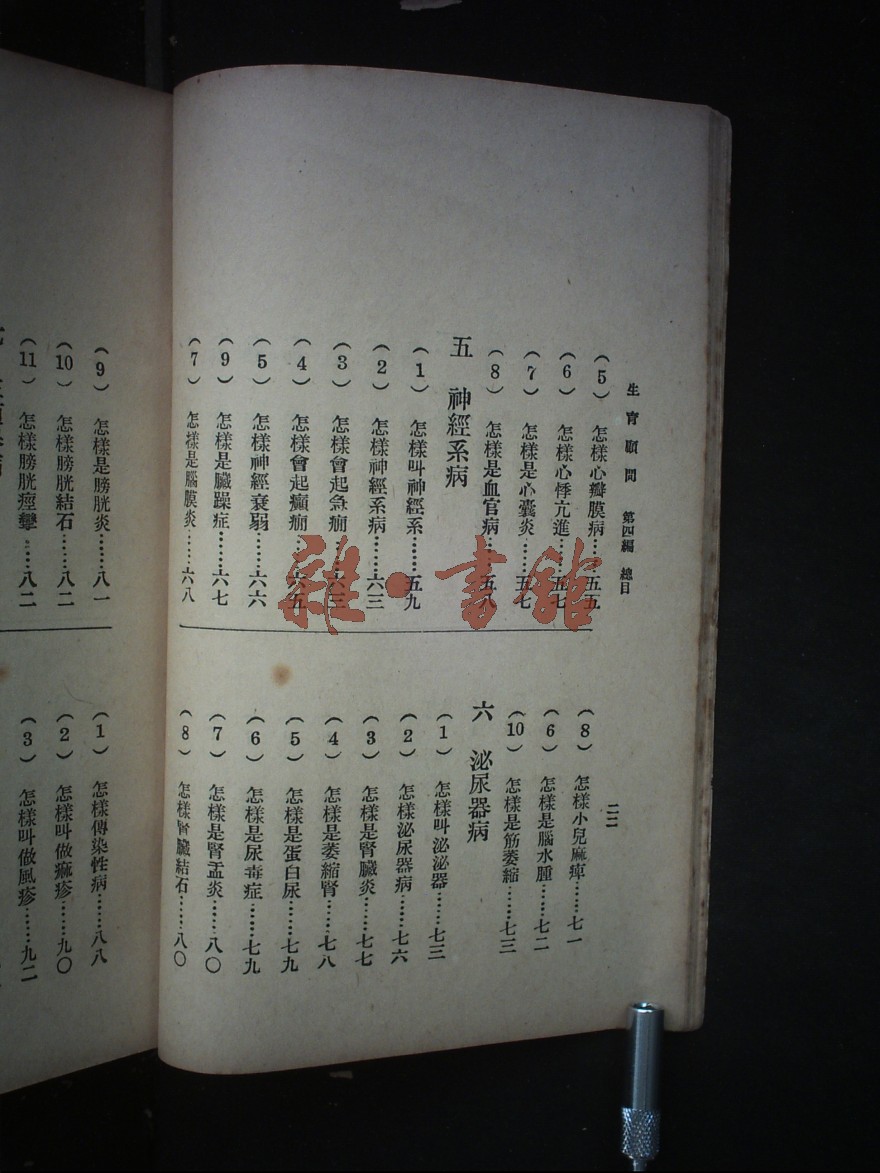 生育顧問　第四編　總目
二二
(5)　怎樣心瓣膜病……五五
(6)　怎樣心悸亢進……五七
(7)　怎樣是心囊炎……五七
(8)　怎樣是血官病……五八
五　神經系病
(1)　怎樣叫神經系……五九
(2)　怎樣神經系病……六三
(3)　怎樣會起急癇……六三
(4)　怎樣會起癲癇……六五
(5)　怎樣神經衰弱……六六
(9)　怎樣是臟躁症……六七
(7)　怎樣是腦膜炎……六八
(8)　怎樣小兒麻痺……七一
(6)　怎樣是腦水腫……七二
(10)　怎樣是筋萎縮……七三
六　泌尿器病
(1)　怎樣叫泌泌器……七三
(2)　怎樣泌尿器病……七六
(3)　怎樣是腎臟炎……七七
(4)　怎樣是萎縮腎……七八
(5)　怎樣是蛋白尿……七九
(6)　怎樣是尿毒症……七九
(7)　怎樣是腎盂炎……八〇
(8)　怎樣腎臟結石……八〇
(9)　怎樣是膀胱炎……八一
(10)　怎樣膀胱結石……八二
(11)　怎樣膀胱痙攣……八二
(1)　怎樣傳染性病……八八
(2)　怎樣叫做痲疹……九〇
(3)　怎樣叫做風疹……九二
雜·書館